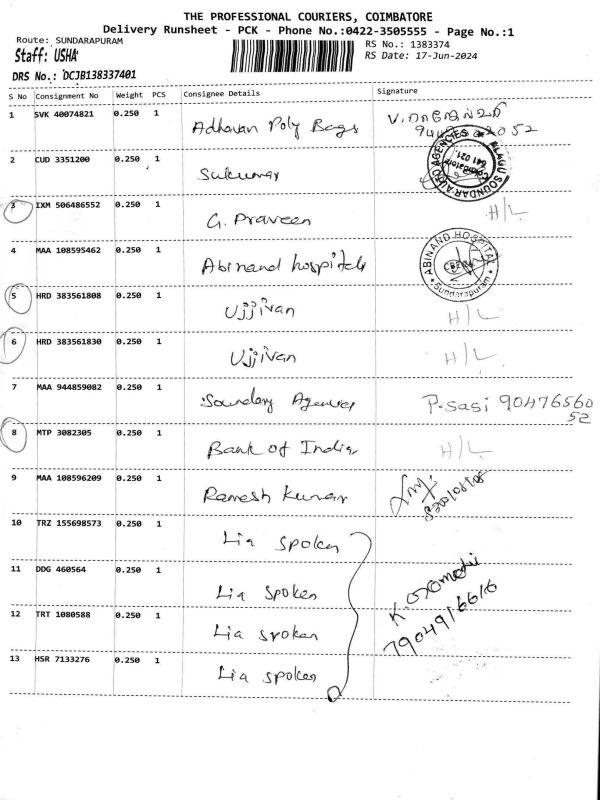 THE PROFESSIONAL COURIERS, COIMBATORE
Delivery Runsheet - PCK - Phone No.:0422-3505555 - Page No.:1
Route: SUNDARAPURAM
RS No.: 1383374
Staff: USHA
RS Date: 17-Jun-2024
DRS No.: DCJB138337401
S No Consignment No Weight PCS Consignee Details Signature
1 SVK 40074821 0.250 1 Adhavan Poly Bags
2 CUD 3351200 0.250 1 Sukumar
3 IXM 506486552 0.250 1 G. Praveen H/L
4 MAA 108595462 0.250 1 Abinand hospitals ABINAND HOSPITAL Sundarapuram
5 HRD 383561808 0.250 1 Ujjivan H/L
6 HRD 383561830 0.250 1 Ujjivan H/L
7 MAA 944859082 0.250 1 Soundary Agencies P.sasi 90476560
52
8 MTP 3082305 0.250 1 Bank of India H/L
9 MAA 108596209 0.250 1 Ramesh Kumar
10 TRZ 155698573 0.250 1 Lia spoken
11 DDG 460564 0.250 1 Lia spoken
12 TRT 1080588 0.250 1 Lia spoken
7904916616
13 HSR 7133276 0.250 1 Lia spoken